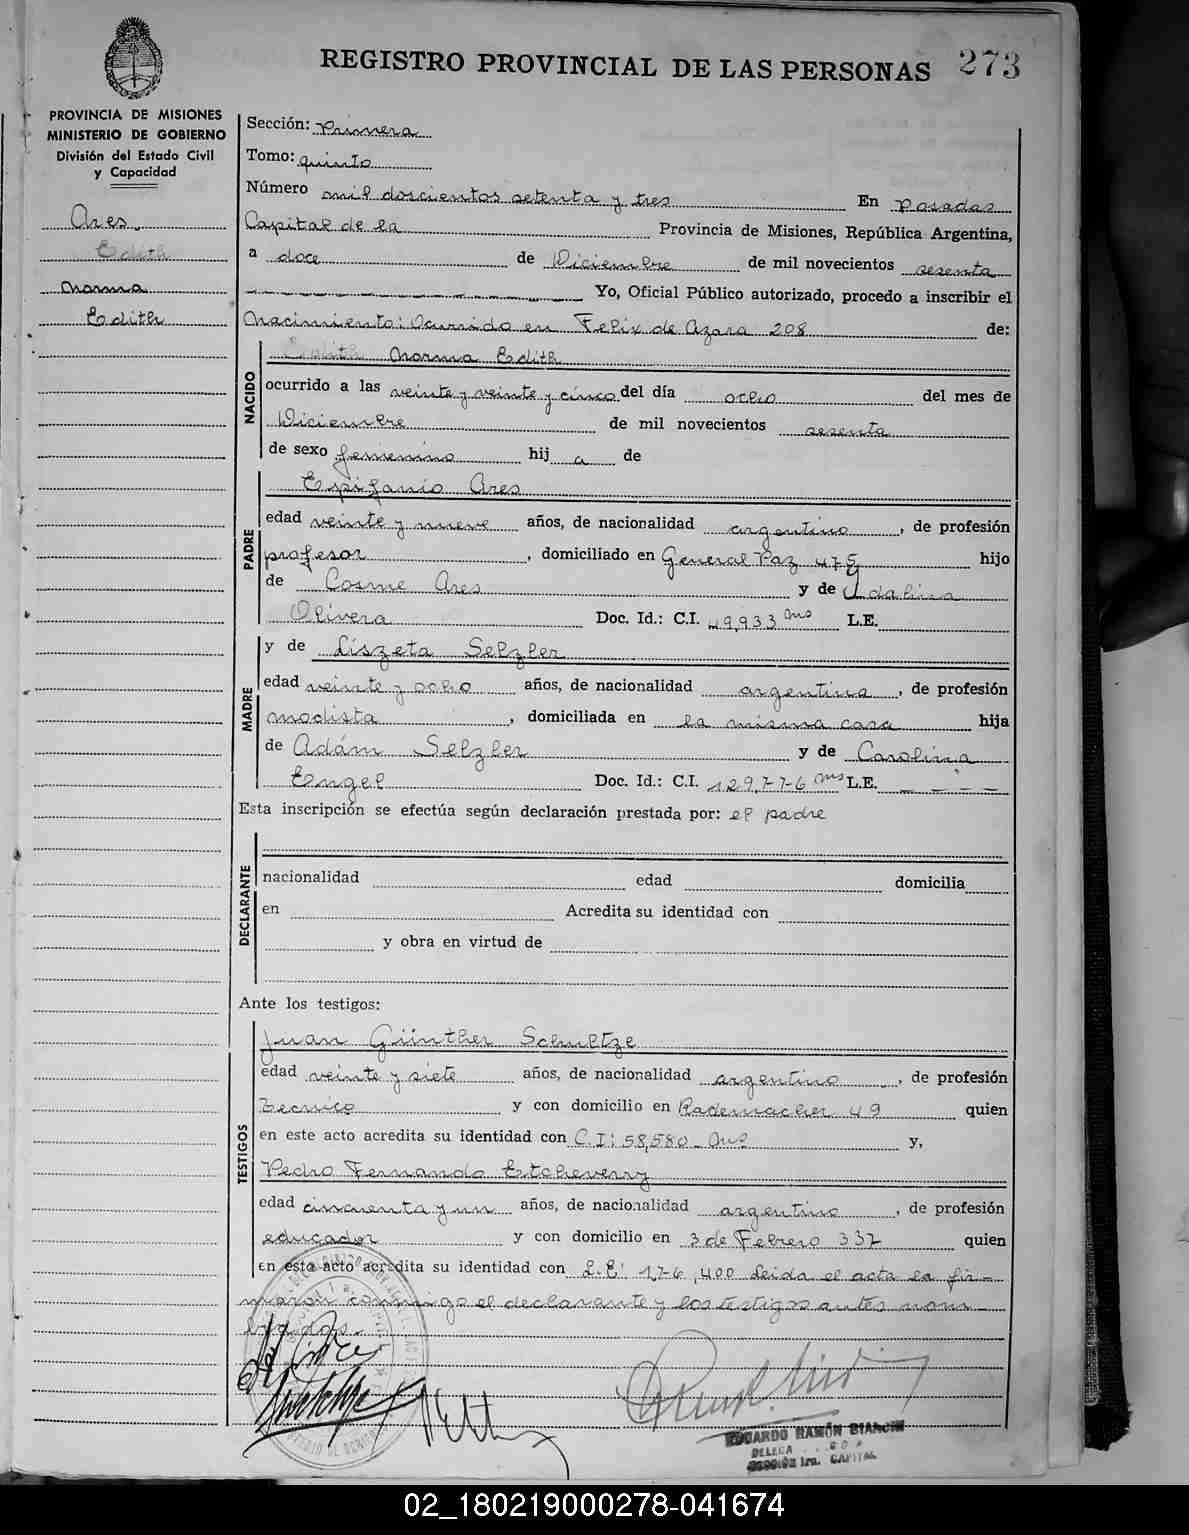 REGISTRO PROVINCIAL DE LAS PERSONAS 273
PROVINCIA DE MISIONES
MINISTERIO DE GOBIERNO
División del Estado Civil
y Capacidad
Ares
Edith
Norma
Edith
Sección: Primera
Tomo: quinto
Número mil doscientos setenta y tres En Posadas
Capital de la Provincia de Misiones, República Argentina,
a doce de Diciembre de mil novecientos sesenta
Yo, Oficial Público autorizado, procedo a inscribir el
Nacimiento: Ocurrido en Felix de Azara 208 de:
NACIDO
Edith Norma Edith
ocurrido a las veinte y veinte y cinco del día ocho del mes de
Diciembre de mil novecientos sesenta
de sexo femenino hij a de
PADRE
Epifanio Ares
edad veinte y nueve años, de nacionalidad argentino, de profesión
profesor, domiciliado en General Paz 475 hijo
de Cosme Ares y de Idalina
Olivera Doc. Id.: C.I. 49,933 Mns L.E.
MADRE
y de Liszeta Selzler
edad veinte y ocho años, de nacionalidad argentina, de profesión
modista, domiciliada en la misma casa hija
de Adám Selzler y de Carolina
Engel Doc. Id.: C.I. 129,776 Mns L.E. - - - -
Esta inscripción se efectúa según declaración prestada por: el padre
DECLARANTE
nacionalidad edad domicilia
en Acredita su identidad con
y obra en virtud de
Ante los testigos:
TESTIGOS
Juan Günther Schultze
edad veinte y siete años, de nacionalidad argentino, de profesión
Tecnico y con domicilio en Rademacher 49 quien
en este acto acredita su identidad con C.I: 58,580 Mns y,
Pedro Fernando Etcheverry
edad cincuenta y un años, de nacionalidad argentino, de profesión
educador y con domicilio en 3 de Febrero 337 quien
en este acto acredita su identidad con L.E: 176,400 Leida el acta la fir-
maron conmigo el declarante y los testigos antes nom-
brados.-
EDUARDO RAMÓN BIANCHI
SECCION 1ra. CAPITAL
02_180219000278-041674